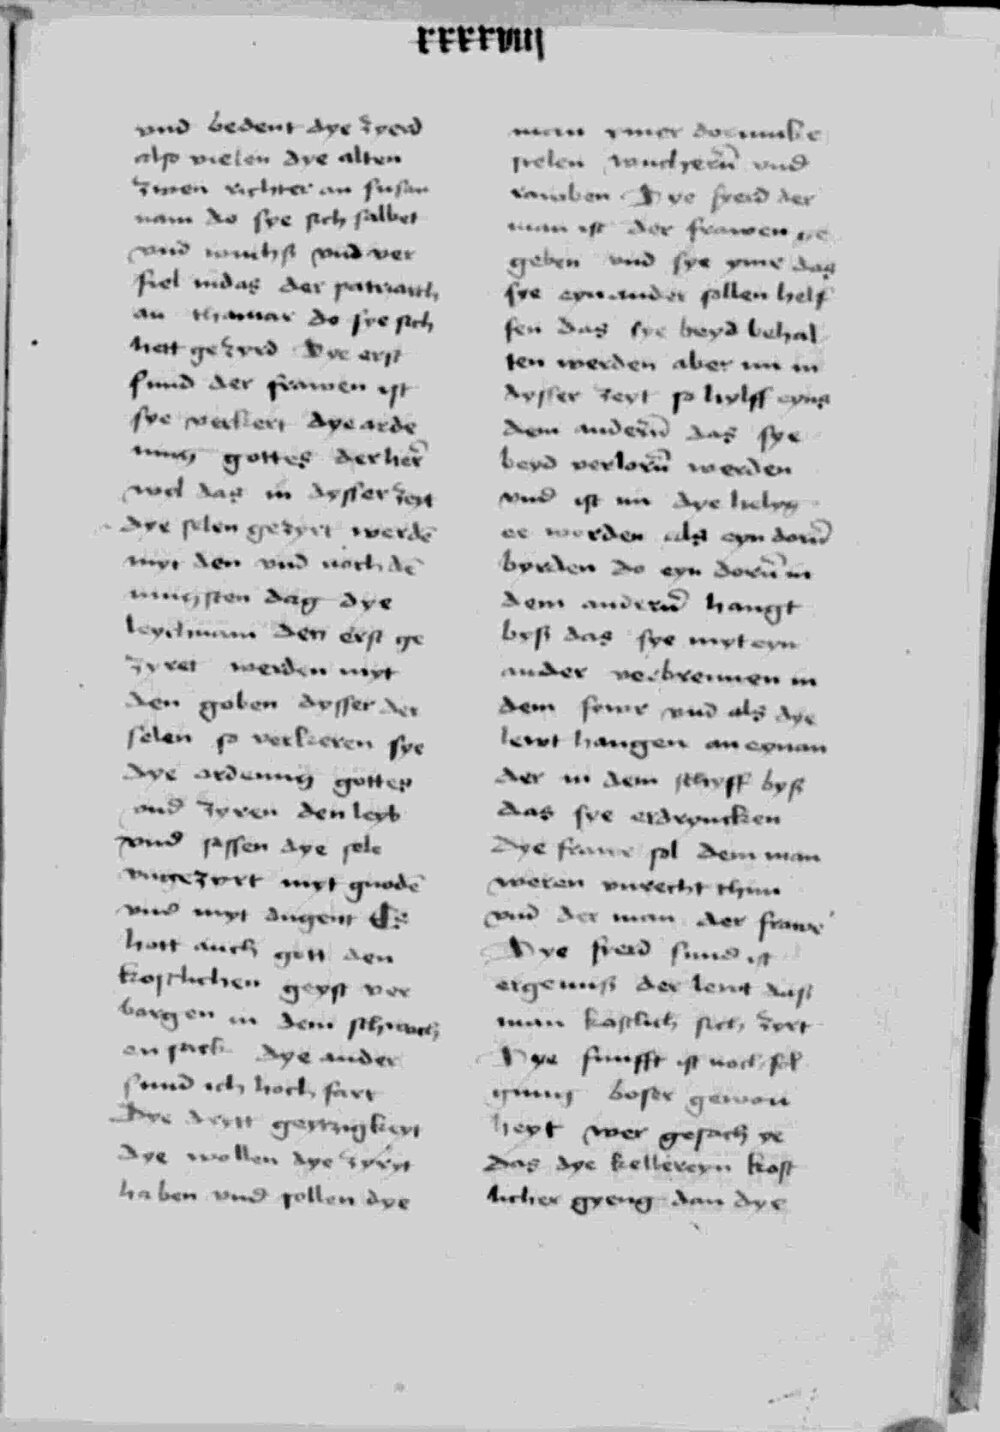 xxxxviij
vnd bedeut dye zyerd
also vielen dye alten
zwen richter an susan
nam do sye sich salbet
vnd wuchß vnd ver
fiel iudas der patriarch
an thamar do sye sich
hett gezyrd Dye erst
sund der frawen ist
sye verkert dye orde
nung gottes der her̄
wil das in dysser zeyt
dye selen gezyrt werdē
myt den vnd noch dē
iungsten dag dye
leychnam den erst ge
zyret werden myt
den goben dysser der
selen so verkeren sye
dye ordenung gottes
vnd zyren den leyb
vnd lassen dye sele
vngezyrt myt gnodē
vnd myt dugent Es
hott auch gott den
kostlichen geyst ver
borgen in dem schwach
en sack dye ander
sund ich hoch fart
Dye drytt geytzigkeyt
dye wollen dye zyryt
haben vnd sollen dye
man ymer dorumb e
stelen wuchern̄ vnd
rawben Dye fyerd der
man ist der frawen ge
geben vnd sye yme das
sye eynander sollen helf
fen das sye beyd behal
ten werden aber nu in
dysser zeyt so hylff eyns
dem andern̄ das sye
beyd verlorn̄ werden
vnd ist nu dye helyg
ee worden als eyn dorn̄
byrden do eyn dorn̄ in
dem andern̄ hangt
byß das sye myt eyn
ander verbrennen in
dem fewr vnd als dye
lewt hangen an eynan
der in dem schyff byß
das sye erdryncken
Dye frawe sol dem man
weren vnrecht thun
vnd der man der frawē
Dye fierd sund ist
ergernuß der lewt das
man kostlich sich zyrt
Dye funfft ist noch fol
gung boser gewon
heyt wer gesach ye
das dye kellereyn kost
licher gyeng dan dye